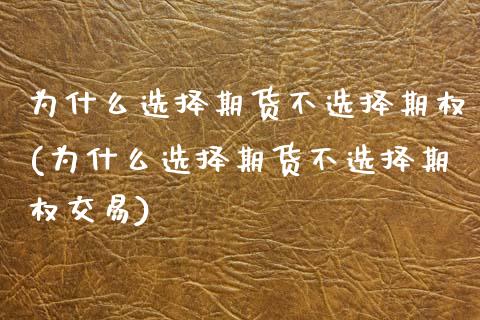 为什么选择期货不选择期权
(为什么选择期货不选择期
权交易)